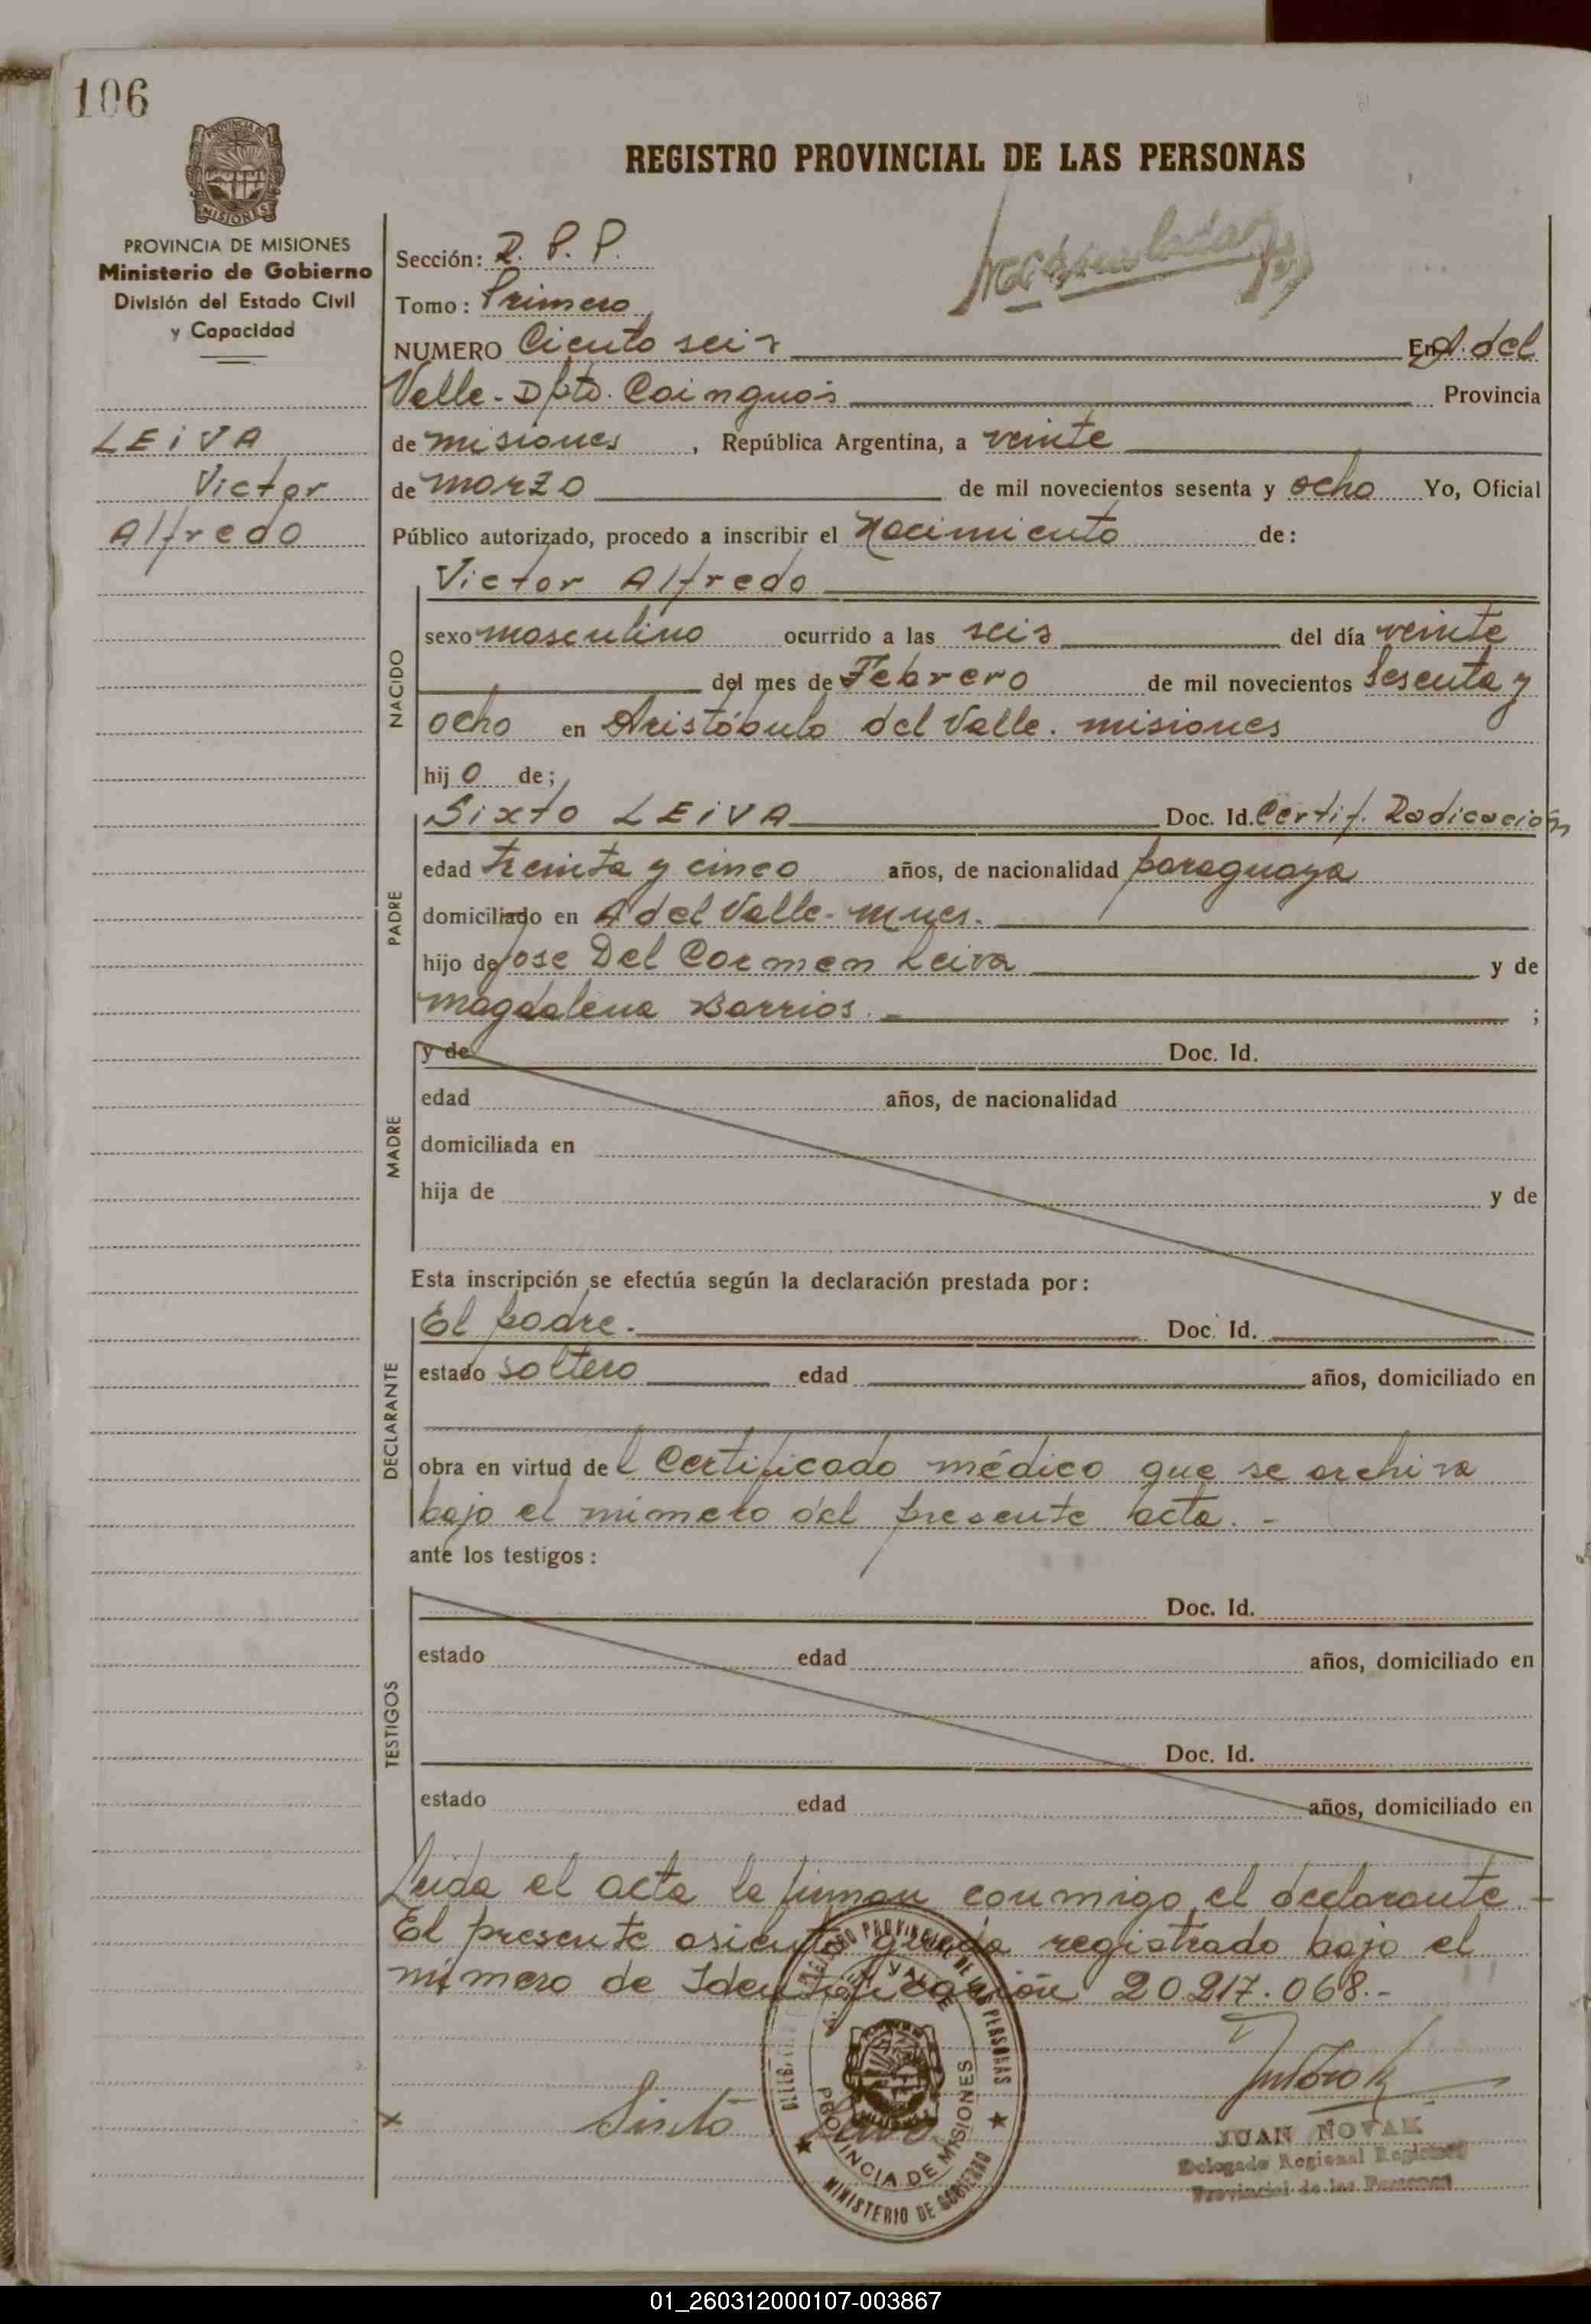 106
REGISTRO PROVINCIAL DE LAS PERSONAS
PROVINCIA DE MISIONES
Ministerio de Gobierno
División del Estado Civil
y Capacidad
LEIVA
Victor
Alfredo
Sección: R. P. P.
Tomo: Primero
NUMERO Ciento seis En A. del
Valle - Dpto. Cainguás Provincia
de misiones, República Argentina, a veinte
de marzo de mil novecientos sesenta y ocho Yo, Oficial
Público autorizado, procedo a inscribir el Nacimiento de:
NACIDO
Victor Alfredo
sexo masculino ocurrido a las seis del día veinte
del mes de Febrero de mil novecientos sesenta y
ocho en Aristóbulo del Valle. misiones
hijo de;
PADRE
Sixto LEIVA Doc. Id. Certif. Radicación
edad treinta y cinco años, de nacionalidad paraguaya
domiciliado en A del Valle - Mnes.
hijo de Jose Del Carmen Leiva y de
Magdalena Barrios. - ;
MADRE
y de Doc. Id.
edad años, de nacionalidad
domiciliada en
hija de y de
Esta inscripción se efectúa según la declaración prestada por:
DECLARANTE
El padre. Doc. Id.
estado soltero edad años, domiciliado en
obra en virtud del Certificado médico que se archiva
bajo el número del presente acta. -
ante los testigos:
TESTIGOS
Doc. Id.
estado edad años, domiciliado en
Doc. Id.
estado edad años, domiciliado en
Leida el acta la firman conmigo el declarante. -
El presente asiento queda registrado bajo el
número de Identificación 20.217.068.-
REGISTRO PROVINCIAL DE LAS PERSONAS
A. DEL VALLE
PROVINCIA DE MISIONES
MINISTERIO DE GOBIERNO
x Sixto Leiva
JUAN NOVAK
Delegado Regional Registro
Provincial de las Personas
01_260312000107-003867